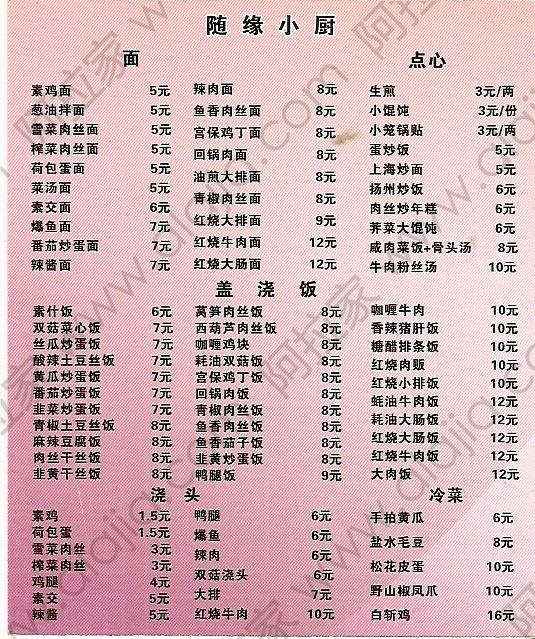 随缘小厨
面
素鸡面 5元
葱油拌面 5元
雪菜肉丝面 5元
榨菜肉丝面 5元
荷包蛋面 5元
菜汤面 5元
素交面 6元
爆鱼面 7元
番茄炒蛋面 7元
辣酱面 7元
辣肉面 8元
鱼香肉丝面 8元
宫保鸡丁面 8元
回锅肉面 8元
油煎大排面 8元
青椒肉丝面 8元
红烧大排面 9元
红烧牛肉面 12元
红烧大肠面 12元
点心
生煎 3元/两
小馄饨 3元/份
小笼锅贴 3元/两
蛋炒饭 5元
上海炒面 5元
扬州炒饭 6元
肉丝炒年糕 6元
荠菜大馄饨 6元
咸肉菜饭+骨头汤 8元
牛肉粉丝汤 10元
盖浇饭
素什饭 6元
双菇菜心饭 7元
丝瓜炒蛋饭 7元
酸辣土豆丝饭 7元
黄瓜炒蛋饭 7元
番茄炒蛋饭 7元
韭菜炒蛋饭 7元
青椒土豆丝饭 8元
麻辣豆腐饭 8元
肉丝干丝饭 8元
韭黄干丝饭 8元
莴笋肉丝饭 8元
西葫芦肉丝饭 8元
咖喱鸡块 8元
耗油双菇饭 8元
宫保鸡丁饭 8元
回锅肉饭 8元
青椒肉丝饭 8元
鱼香肉丝饭 8元
鱼香茄子饭 8元
韭黄炒蛋饭 8元
鸭腿饭 9元
咖喱牛肉 10元
香辣猪肝饭 10元
糖醋排条饭 10元
红烧肉饭 10元
红烧小排饭 10元
蚝油牛肉饭 12元
耗油大肠饭 12元
红烧大肠饭 12元
红烧牛肉饭 12元
大肉饭 12元
浇头
素鸡 1.5元
荷包蛋 1.5元
雪菜肉丝 3元
榨菜肉丝 3元
鸡腿 4元
素交 5元
辣酱 5元
鸭腿 6元
爆鱼 6元
辣肉 6元
双菇浇头 6元
大排 7元
红烧牛肉 10元
冷菜
手拍黄瓜 6元
盐水毛豆 8元
松花皮蛋 10元
野山椒凤爪 10元
白斩鸡 16元
阿拉家 www.alajia.com